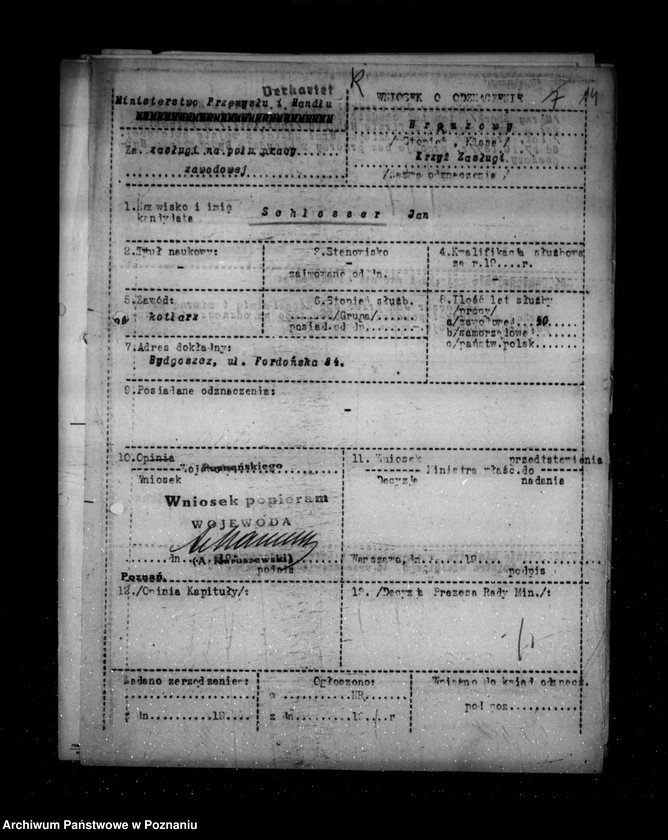 K
WNIOSEK O ODZNACZENIE 7 14
Ministerstwo Przemysłu i Handlu
Za zasługi na polu pracy
zawodowej
Brązowy
/Stopień, Klasa/
Krzyż Zasługi
/Nazwa odznaczenia/
1. Nazwisko i imię
kandydata
Schlosser Jan
2. Tytuł naukowy:
-
3. Stanowisko
-
zajmowane od dn.
4. Kwalifikacja służbowa
za r.19....r.
-
5. Zawód:
kotlarz
6. Stopień służb.
......./Grupa/.......
posiad. od dn. ....-....
8. Ilość lat służby
/pracy/
a/zawodowej..50....
b/samorządowej......
c/państw.polsk......
7. Adres dokładny:
Bydgoszcz, ul. Fordońska 84.
9. Posiadane odznaczenia:
-
10. Opinia
Poznańskiego
Wniosek
Wniosek popieram
WOJEWODA
dn.
(A. Maruszewski)
podpis
Poznań.
11. Wniosek przedstawienia
Ministra właśc. do
Decyzja nadania
Warszawa, dn. ..... 19....
podpis
12. /Opinia Kapituły/:
/Decyzja Prezesa Rady Min./:
Nadano zarządzeniem:
z dn..........19....
Ogłoszono:
w .......... NR....
z dn..........19...r
Wpisano do ksiąg odznacz.
pod poz............
Archiwum Państwowe w Poznaniu